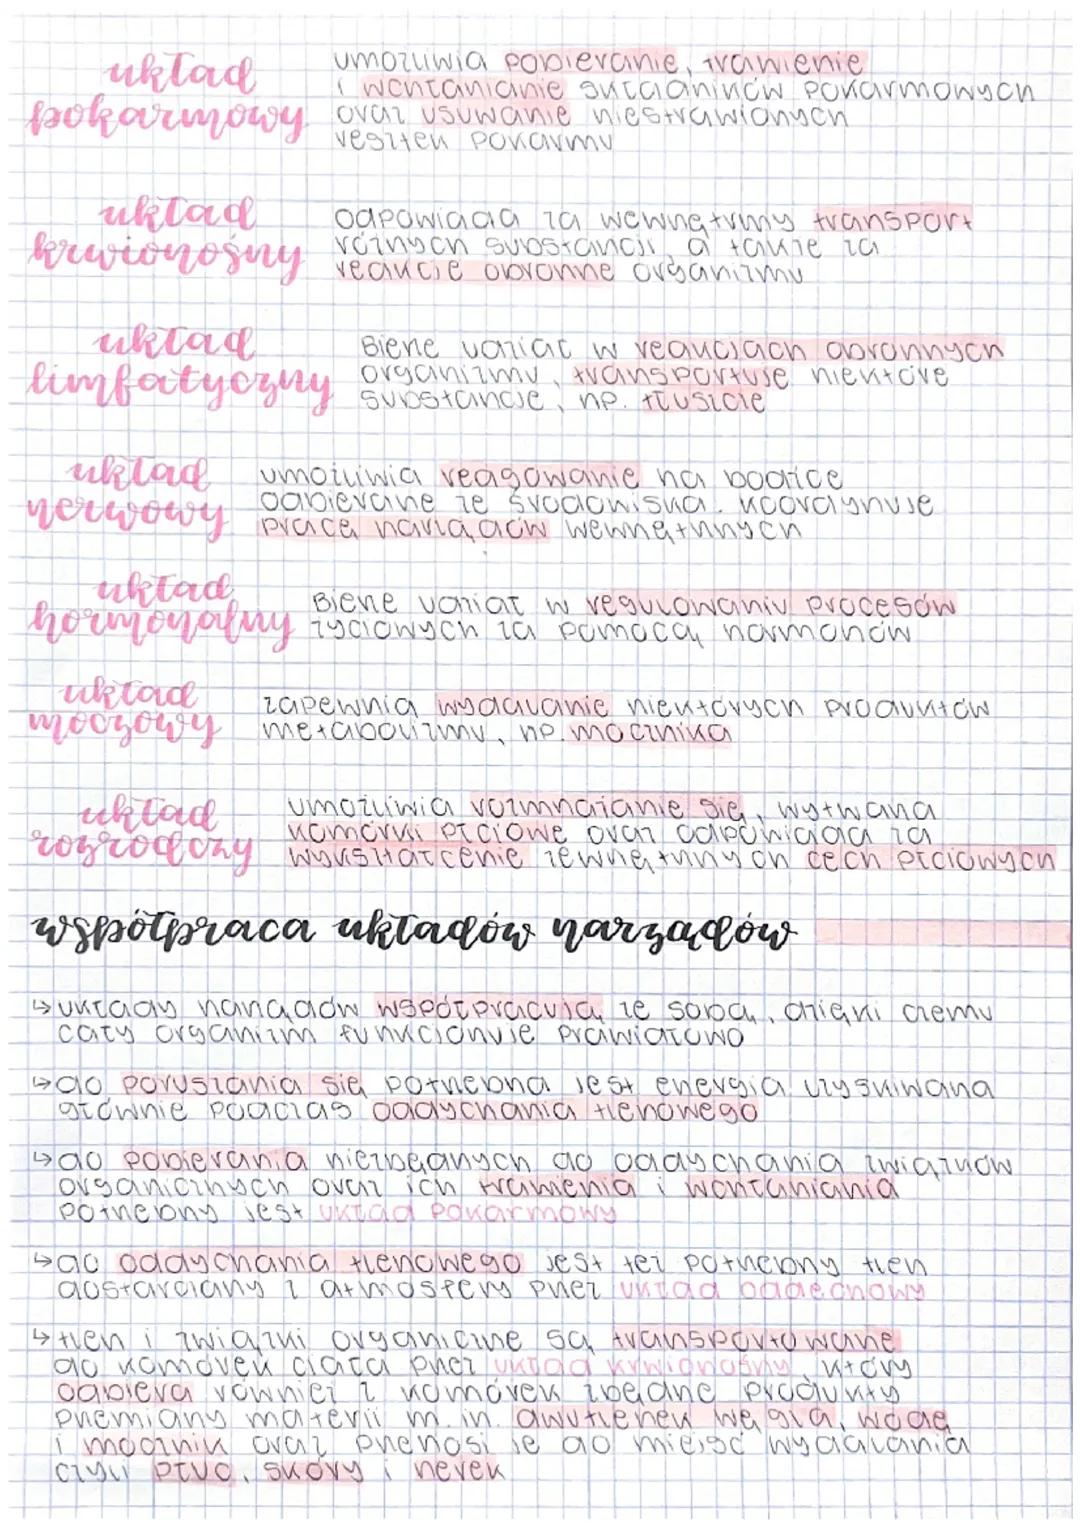 układ
pokarmowy
umożliwia pobieranie, trawienie
i wchłanianie składników pokarmowych
oraz usuwanie niestrawionych
resztek pokarmu
układ
krwionośny
odpowiada za wewnętrzny transport
różnych substancji, a także za
reakcje obronne organizmu
układ
limfatyczny
Bierze udział w reakcjach obronnych
organizmu, transportuje niektóre
substancje, np. tłuszcze
układ
nerwowy
umożliwia reagowanie na bodźce
odbierane ze środowiska. koordynuje
pracę narządów wewnętrznych
układ
hormonalny
Bierze udział w regulowaniu procesów
życiowych za pomocą hormonów
układ
moczowy
zapewnia wydalanie niektórych produktów
metabolizmu, np. mocznika
układ
rozrodczy
umożliwia rozmnażanie się, wytwarza
komórki płciowe oraz odpowiada za
wykształcenie zewnętrznych cech płciowych
współpraca układów narządów
↳ układy narządów współpracują ze sobą, dzięki czemu
cały organizm funkcjonuje prawidłowo
↳ do poruszania się potrzebna jest energia uzyskiwana
głównie podczas oddychania tlenowego
↳ do pobierania niezbędnych do oddychania związków
organicznych oraz ich trawienia i wchłaniania
potrzebny jest układ pokarmowy
↳ do oddychania tlenowego jest też potrzebny tlen
dostarczany z atmosfery przez układ oddechowy
↳ tlen i związki organiczne są transportowane
do komórek ciała przez układ krwionośny, który
odbiera również z komórek zbędne produkty
przemiany materii m.in. dwutlenek węgla, wodę
i mocznik oraz przenosi je do miejsc wydalania
czyli płuc, skóry i nerek